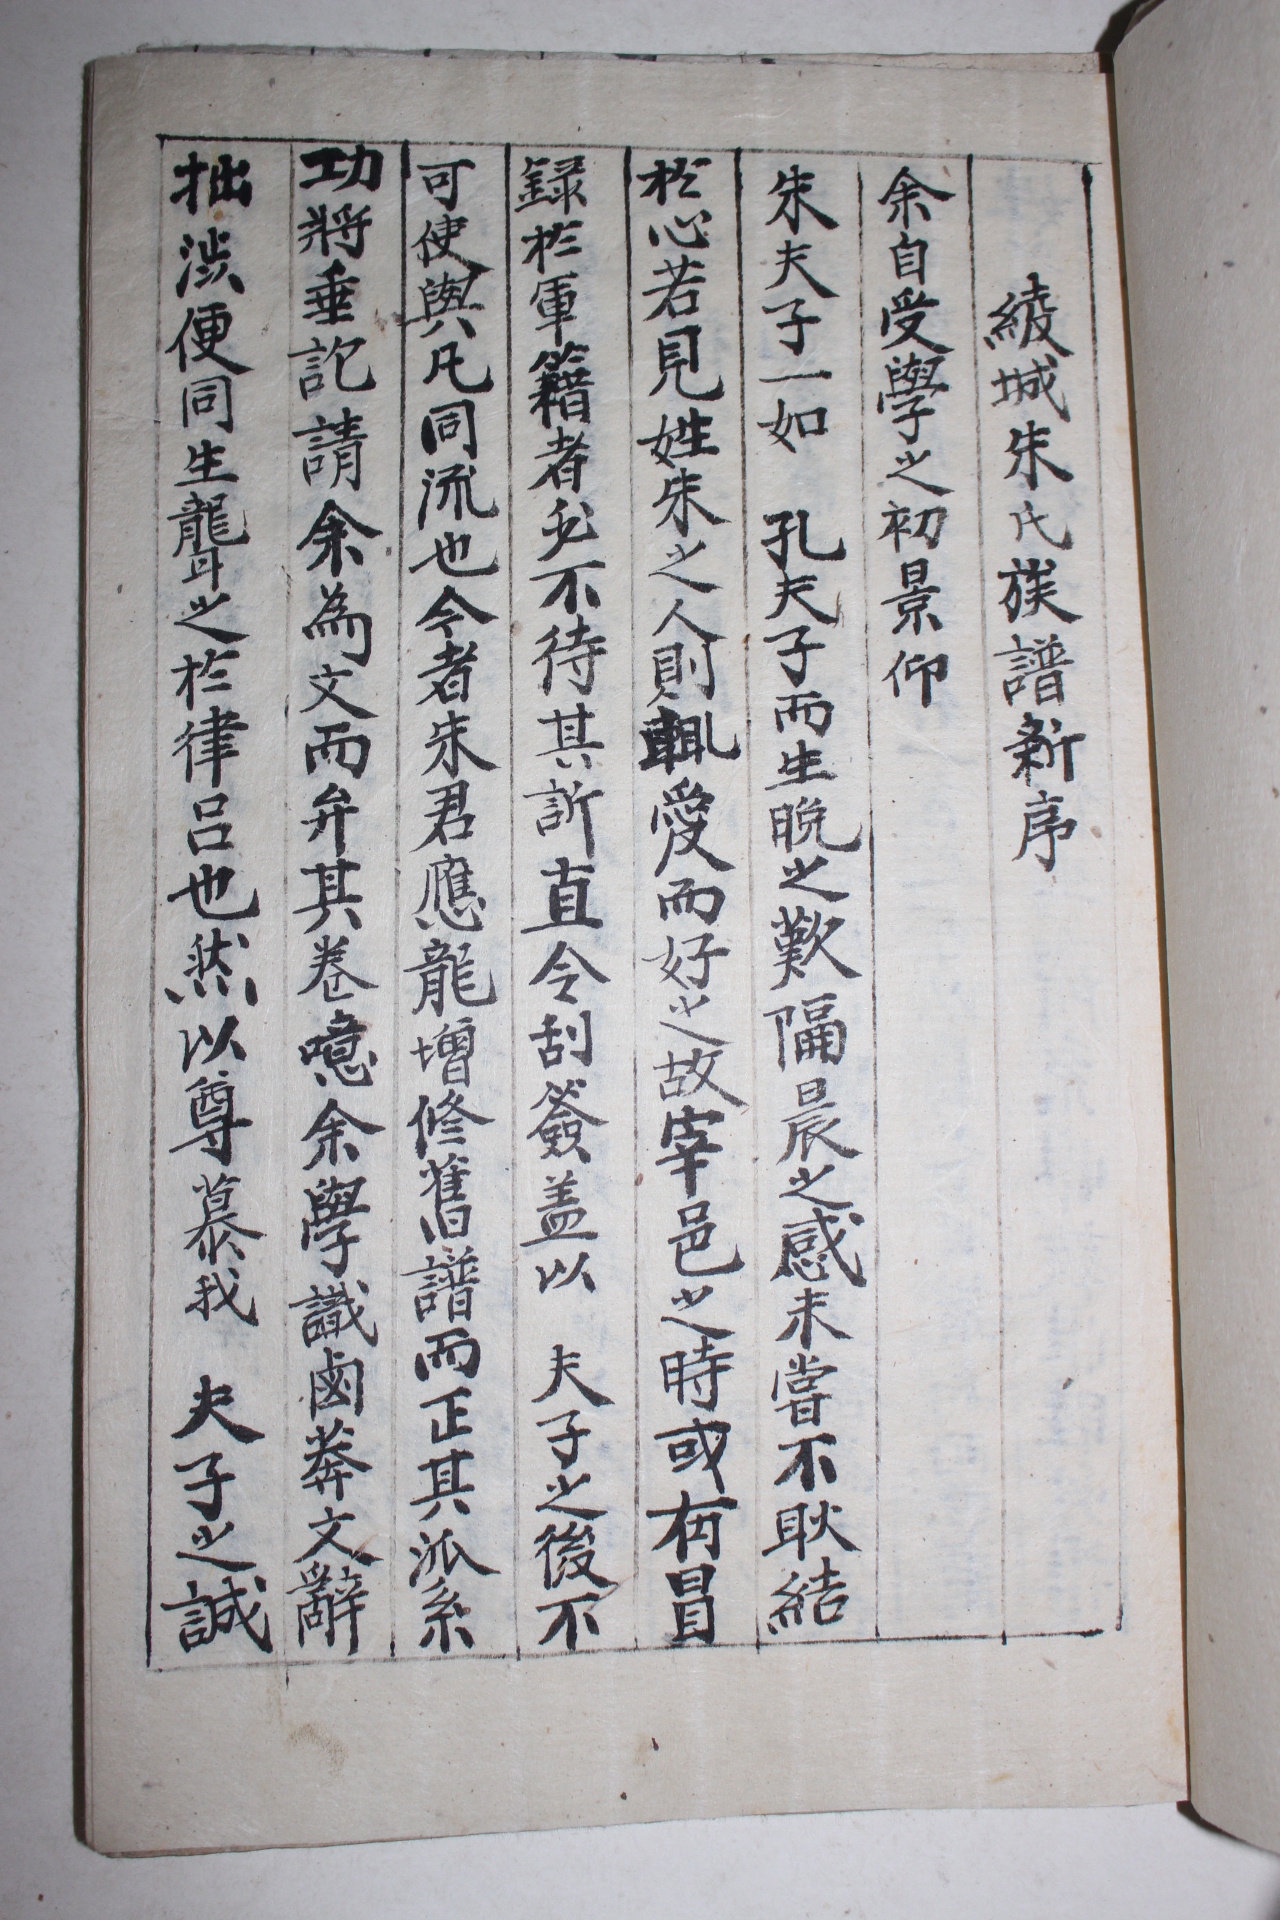 綾城朱氏族譜新序
余自受學之初景仰
朱夫子一如 孔夫子而生晩之歎隔晨之感未嘗不耿結
於心若見姓朱之人則輒愛而好之故宰邑之時或有冒
録於軍籍者必不待其訴直令刮簽盖以 夫子之後不
可使與凡同流也今者朱君應龍增修舊譜而正其派系
功將垂訖請余為文而弁其卷噫余學識鹵莽文辭
拙澁便同生聾之於律呂也然以尊慕我 夫子之誠